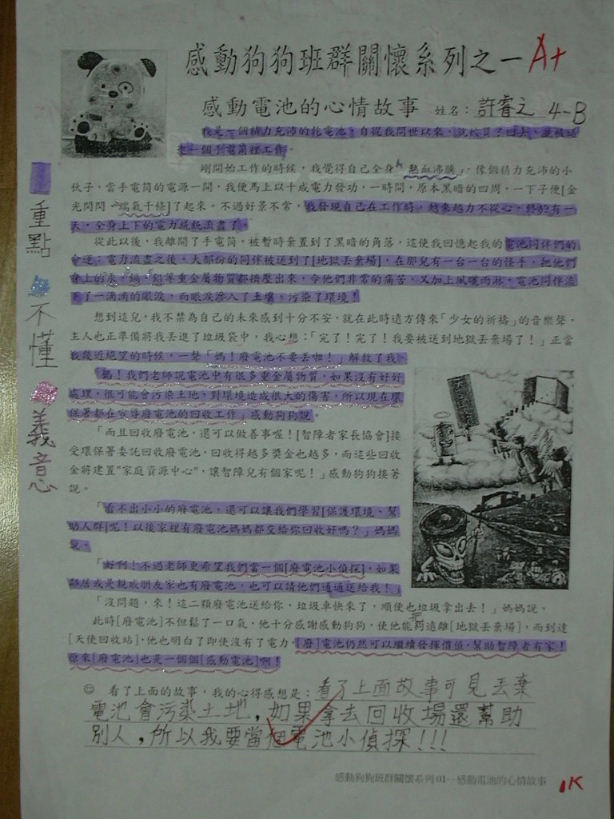 感動狗狗班群關懷系列之一 A+
感動電池的心情故事 姓名：許睿之 4-B
我是一個精力充沛的乾電池。自從我問世以來，
來一個列電筒裡工作。
剛開始工作的時候，我覺得自己全身「熱血沸騰」，像個精力充沛的小
伙子，當手電筒的電源一開，我便馬上以十成電力發功，一時間，原本黑暗的四周，一下子便[金
光閃閃、瑞氣千條]了起來，不過好景不常，我發現自己在工作時，越來越力不從心，終於有一
天，全身上下的電力
從此以後，我離開了手電筒，被暫時棄置到了黑暗的角落，這使我回憶起我的電池同伴們的
電力流盡之後，大部份的同伴被送到了[地獄丟棄場]，在那兒有一台一台的怪手，把他們
身上的汞、鎘、鉛等重金屬物質都擠壓出來，令他們非常的痛苦，又加上風曬雨淋，電池同伴流
了一滴滴的眼淚，而眼淚滲入了土壤，污染了環境！
想到這兒，我不禁為自己的未來感到十分不安，就在此時遠方傳來「少女的祈禱」的音樂聲，
主人也正準備將我丟進了垃圾袋中，我心想：「完了！完了！我要被送到地獄丟棄場了！」正當
我幾近絕望的時候，一聲「媽！廢電池不要丟啦！」解救了我。
「媽！我們老師說電池中有很多重金屬物質，如果沒有好好
處理，很可能會污染土地，對環境造成很大的傷害，所以現在環
保署都在宣導廢電池的回收工作」感動狗狗說。
「而且回收廢電池，還可以做善事喔！[智障者家長協會]接
受環保署委託回收廢電池，回收得越多獎金也越多，而這些回收
金將建置"家庭資源中心"，讓智障兒有個家呢！」感動狗狗接著
說。
「看不出小小的廢電池，還可以讓我們學習[保護環境、幫
助人群]呢！以後家裡有廢電池媽媽都交給你回收好嗎？」媽媽
說。
「好啊！不過老師更希望我們當一個[廢電池小偵探]，如果
鄰居或是親戚朋友家也有廢電池，也可以請他們通通送給我！」
「沒問題，來！這二顆廢電池送給你，垃圾車快來了，順便也垃圾拿出去！」媽媽說。
此時[廢電池]不但鬆了一口氣，他十分感謝感動狗狗，使他能夠遠離[地獄丟棄場]，而到達
[天使回收站]，他也明白了即使沒有了電力，[廢]電池仍然可以繼續發揮價值，幫助智障者有家！
原來[廢電池]也是一個個[感動電池]啊！
重點
不懂
義意
☺ 看了上面的故事，我的心得感想是：看了上面故事可見丟棄
電池會污染土地，如果拿去回收場還幫助
別人，所以我要當個電池小偵探！！！
感動狗狗班群關懷系列01—感動電池的心情故事
1K